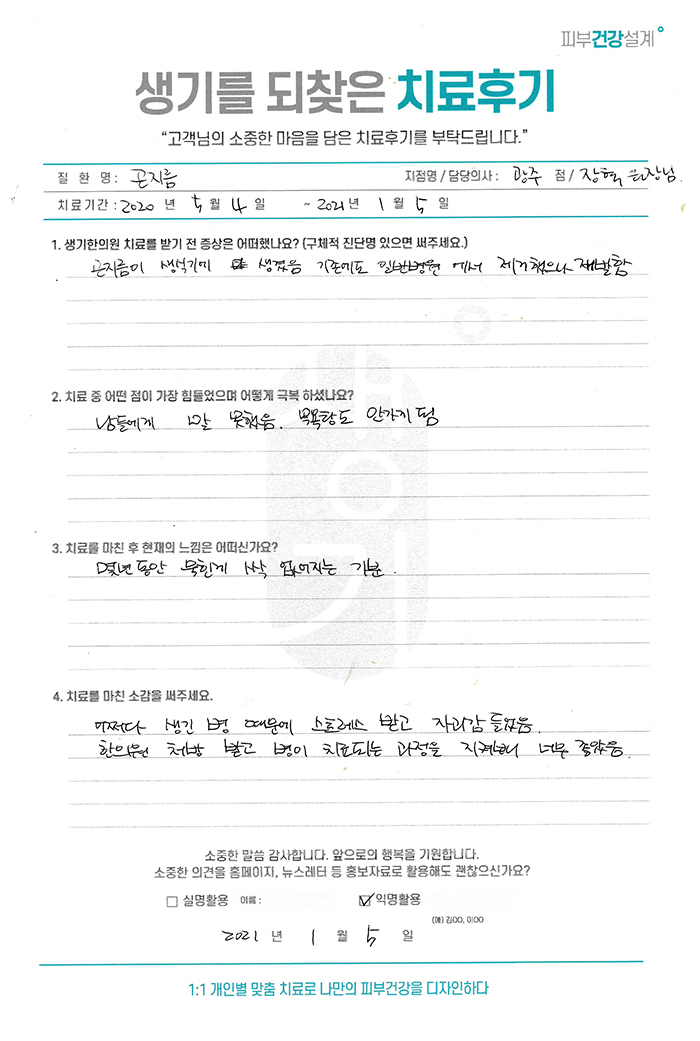 피부건강설계
생기를 되찾은 치료후기
“고객님의 소중한 마음을 담은 치료후기를 부탁드립니다.”
질 환 명 : 곤지름 지점명 / 담당의사 : 광주 점 / 장혁 원장님
치료기간 : 2020 년 5 월 4 일 ~ 2021 년 1 월 5 일
1. 생기한의원 치료를 받기 전 증상은 어떠했나요? (구체적 진단명 있으면 써주세요.)
곤지름이 생식기에 생겼음 기존에도 일반병원에서 제거했으나 재발함
2. 치료 중 어떤 점이 가장 힘들었으며 어떻게 극복 하셨나요?
남들에게 말 못했음. 목욕탕도 안가게 됨
3. 치료를 마친 후 현재의 느낌은 어떠신가요?
몇년동안 묵힌게 싹 없어지는 기분.
4. 치료를 마친 소감을 써주세요.
어쩌다 생긴 병 때문에 스트레스 받고 자괴감 들었음.
한의원 처방 받고 병이 치료되는 과정을 지켜보니 너무 좋았음.
소중한 말씀 감사합니다. 앞으로의 행복을 기원합니다.
소중한 의견을 홈페이지, 뉴스레터 등 홍보자료로 활용해도 괜찮으신가요?
실명활용 이름 : 익명활용
(예) 김OO, 이OO
2021 년 1 월 5 일
1:1 개인별 맞춤 치료로 나만의 피부건강을 디자인하다
생기